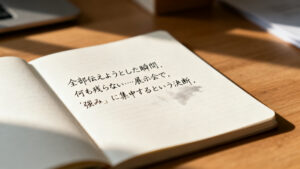 全部伝えようとした瞬間、
何も残らない…展示会で、
「強み」に集中するという決断。